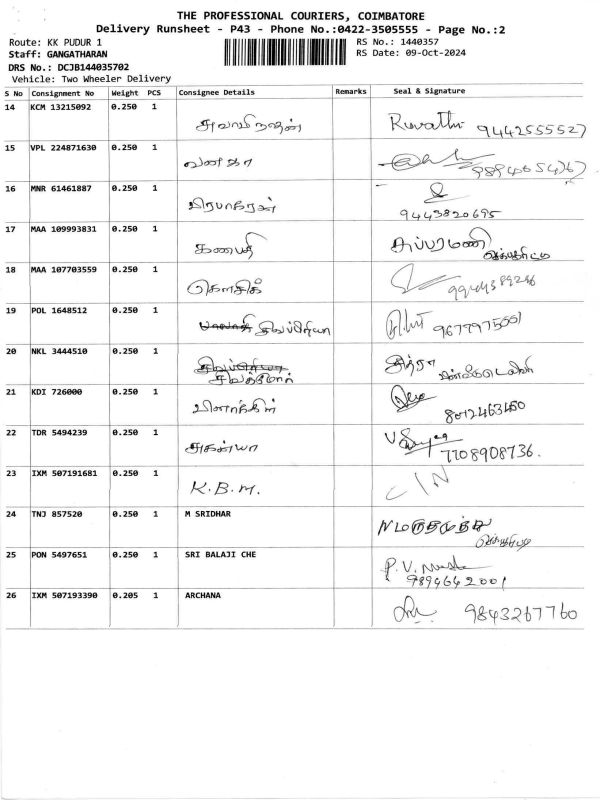 THE PROFESSIONAL COURIERS, COIMBATORE
Delivery Runsheet - P43 - Phone No.:0422-3505555 - Page No.:2
Route: KK PUDUR 1
RS No.: 1440357
Staff: GANGATHARAN
RS Date: 09-Oct-2024
DRS No.: DCJB144035702
Vehicle: Two Wheeler Delivery
S No Consignment No Weight PCS Consignee Details Remarks Seal & Signature
14 KCM 13215092 0.250 1
9442555527
15 VPL 224871630 0.250 1
வனிதா
16 MNR 61461887 0.250 1
பிரபாகரன்
9443820695
17 MAA 109993831 0.250 1
கணபதி சுப்பரமணி
18 MAA 107703559 0.250 1
கௌசிக்
19 POL 1648512 0.250 1
சிவப்பிரியா
20 NKL 3444510 0.250 1
சித்ரா
21 KDI 726000 0.250 1
8012463450
22 TDR 5494239 0.250 1
7708908736.
23 IXM 507191681 0.250 1
K.B.M. C/N
24 TNJ 857520 0.250 1 M SRIDHAR
25 PON 5497651 0.250 1 SRI BALAJI CHE
P.V.
9894642001
26 IXM 507193390 0.205 1 ARCHANA
9843267760